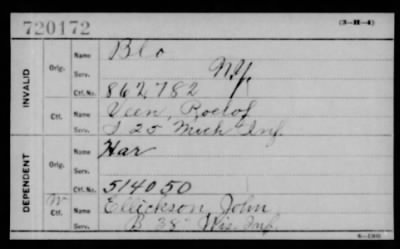 720172
(3-H-4)
INVALID
Orig.
Name Blo
Serv. NY.
Ctf. No. 862,782
Ctf.
Name Veen, Roelof
Serv. I 25 Mich Inf.
DEPENDENT
Orig.
Name Har
Serv.
Ctf. No. 514050
W
Ctf.
Name Ellickson, John
Serv. B 38" Wis. Inf.